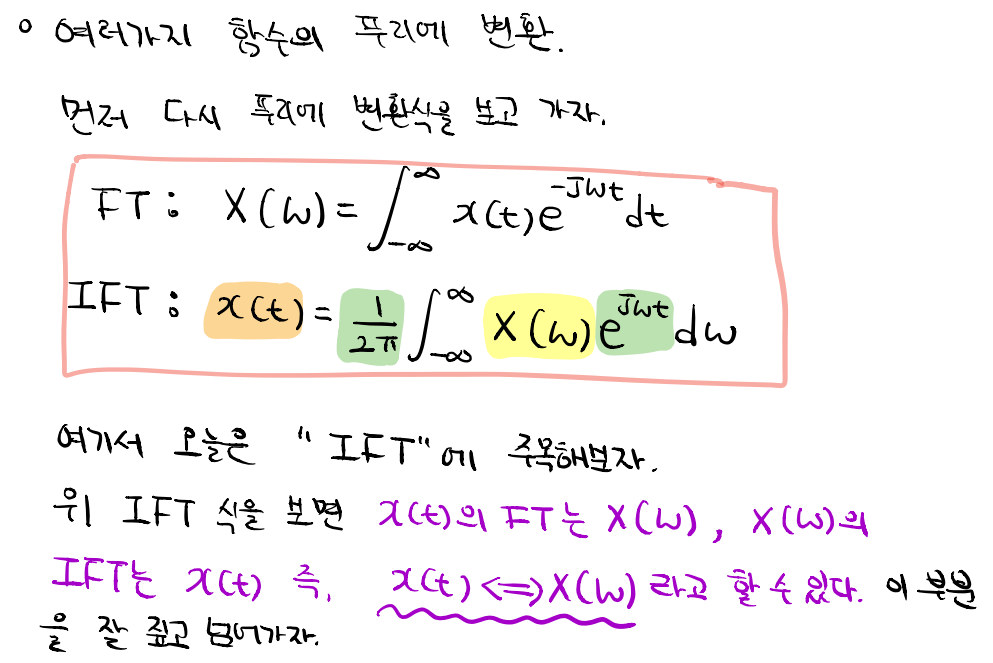 o 여러가지 함수의 푸리에 변환.
먼저 다시 푸리에 변환식을 보고 가자.
FT : X(ω) = ∫_{-∞}^{∞} x(t)e^{-Jωt}dt
IFT : x(t) = 1/2π ∫_{-∞}^{∞} X(ω)e^{Jωt}dω
여기서 오늘은 "IFT"에 주목해보자.
위 IFT 식을 보면 x(t)의 FT는 X(ω), X(ω)의
IFT는 x(t) 즉, x(t)<=>X(ω) 라고 할 수 있다. 이 부분
을 잘 짚고 넘어가자.